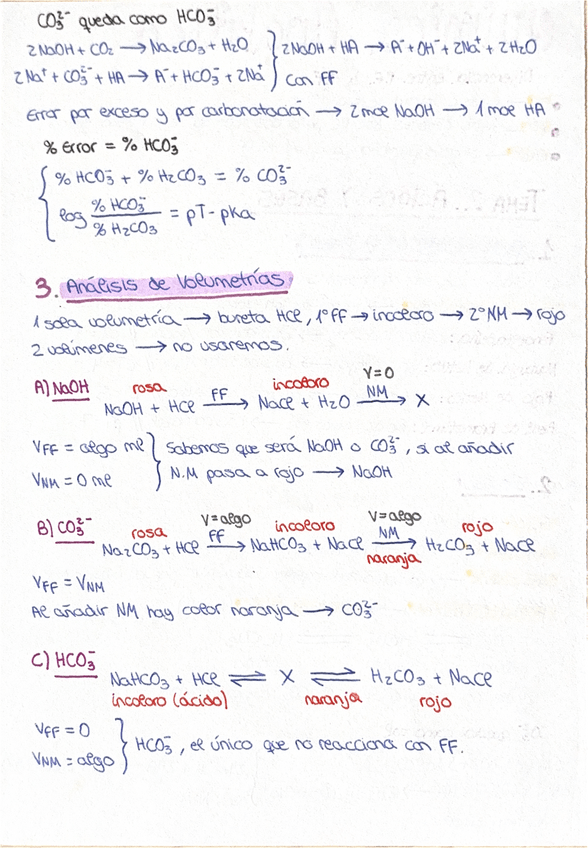 CO₃²⁻ queda como HCO₃⁻
2NaOH + CO₂ → Na₂CO₃ + H₂O } 2NaOH + HA → A⁻ + OH⁻ + 2Na⁺ + 2H₂O
2Na⁺ + CO₃²⁻ + HA → A⁻ + HCO₃⁻ + 2Na⁺ } con FF
Error por exceso y por carbonatación → 2 mol NaOH → 1 mol HA
% Error = % HCO₃⁻
% HCO₃⁻ + % H₂CO₃ = % CO₃²⁻
log % HCO₃⁻ / % H₂CO₃ = pT - pKa
3. Análisis de Volumetrías
1 sola volumetría → bureta HCl, 1º FF → incoloro → 2º NM → rojo
2 volúmenes → no usaremos.
A) NaOH rosa FF incoloro V=0
NaOH + HCl → NaCl + H₂O NM → X
VFF = algo ml } Sabemos que será NaOH o CO₃²⁻, si al añadir
VNM = 0 ml } N.M pasa a rojo → NaOH
B) CO₃²⁻ rosa V=algo FF incoloro V=algo NM rojo
Na₂CO₃ + HCl → NaHCO₃ + NaCl → H₂CO₃ + NaCl
naranja
VFF = VNM
Al añadir NM hay color naranja → CO₃²⁻
C) HCO₃⁻
NaHCO₃ + HCl ⇌ X ⇌ H₂CO₃ + NaCl
incoloro (ácido) naranja rojo
VFF = 0
VNM = algo } HCO₃⁻, el único que no reacciona con FF.